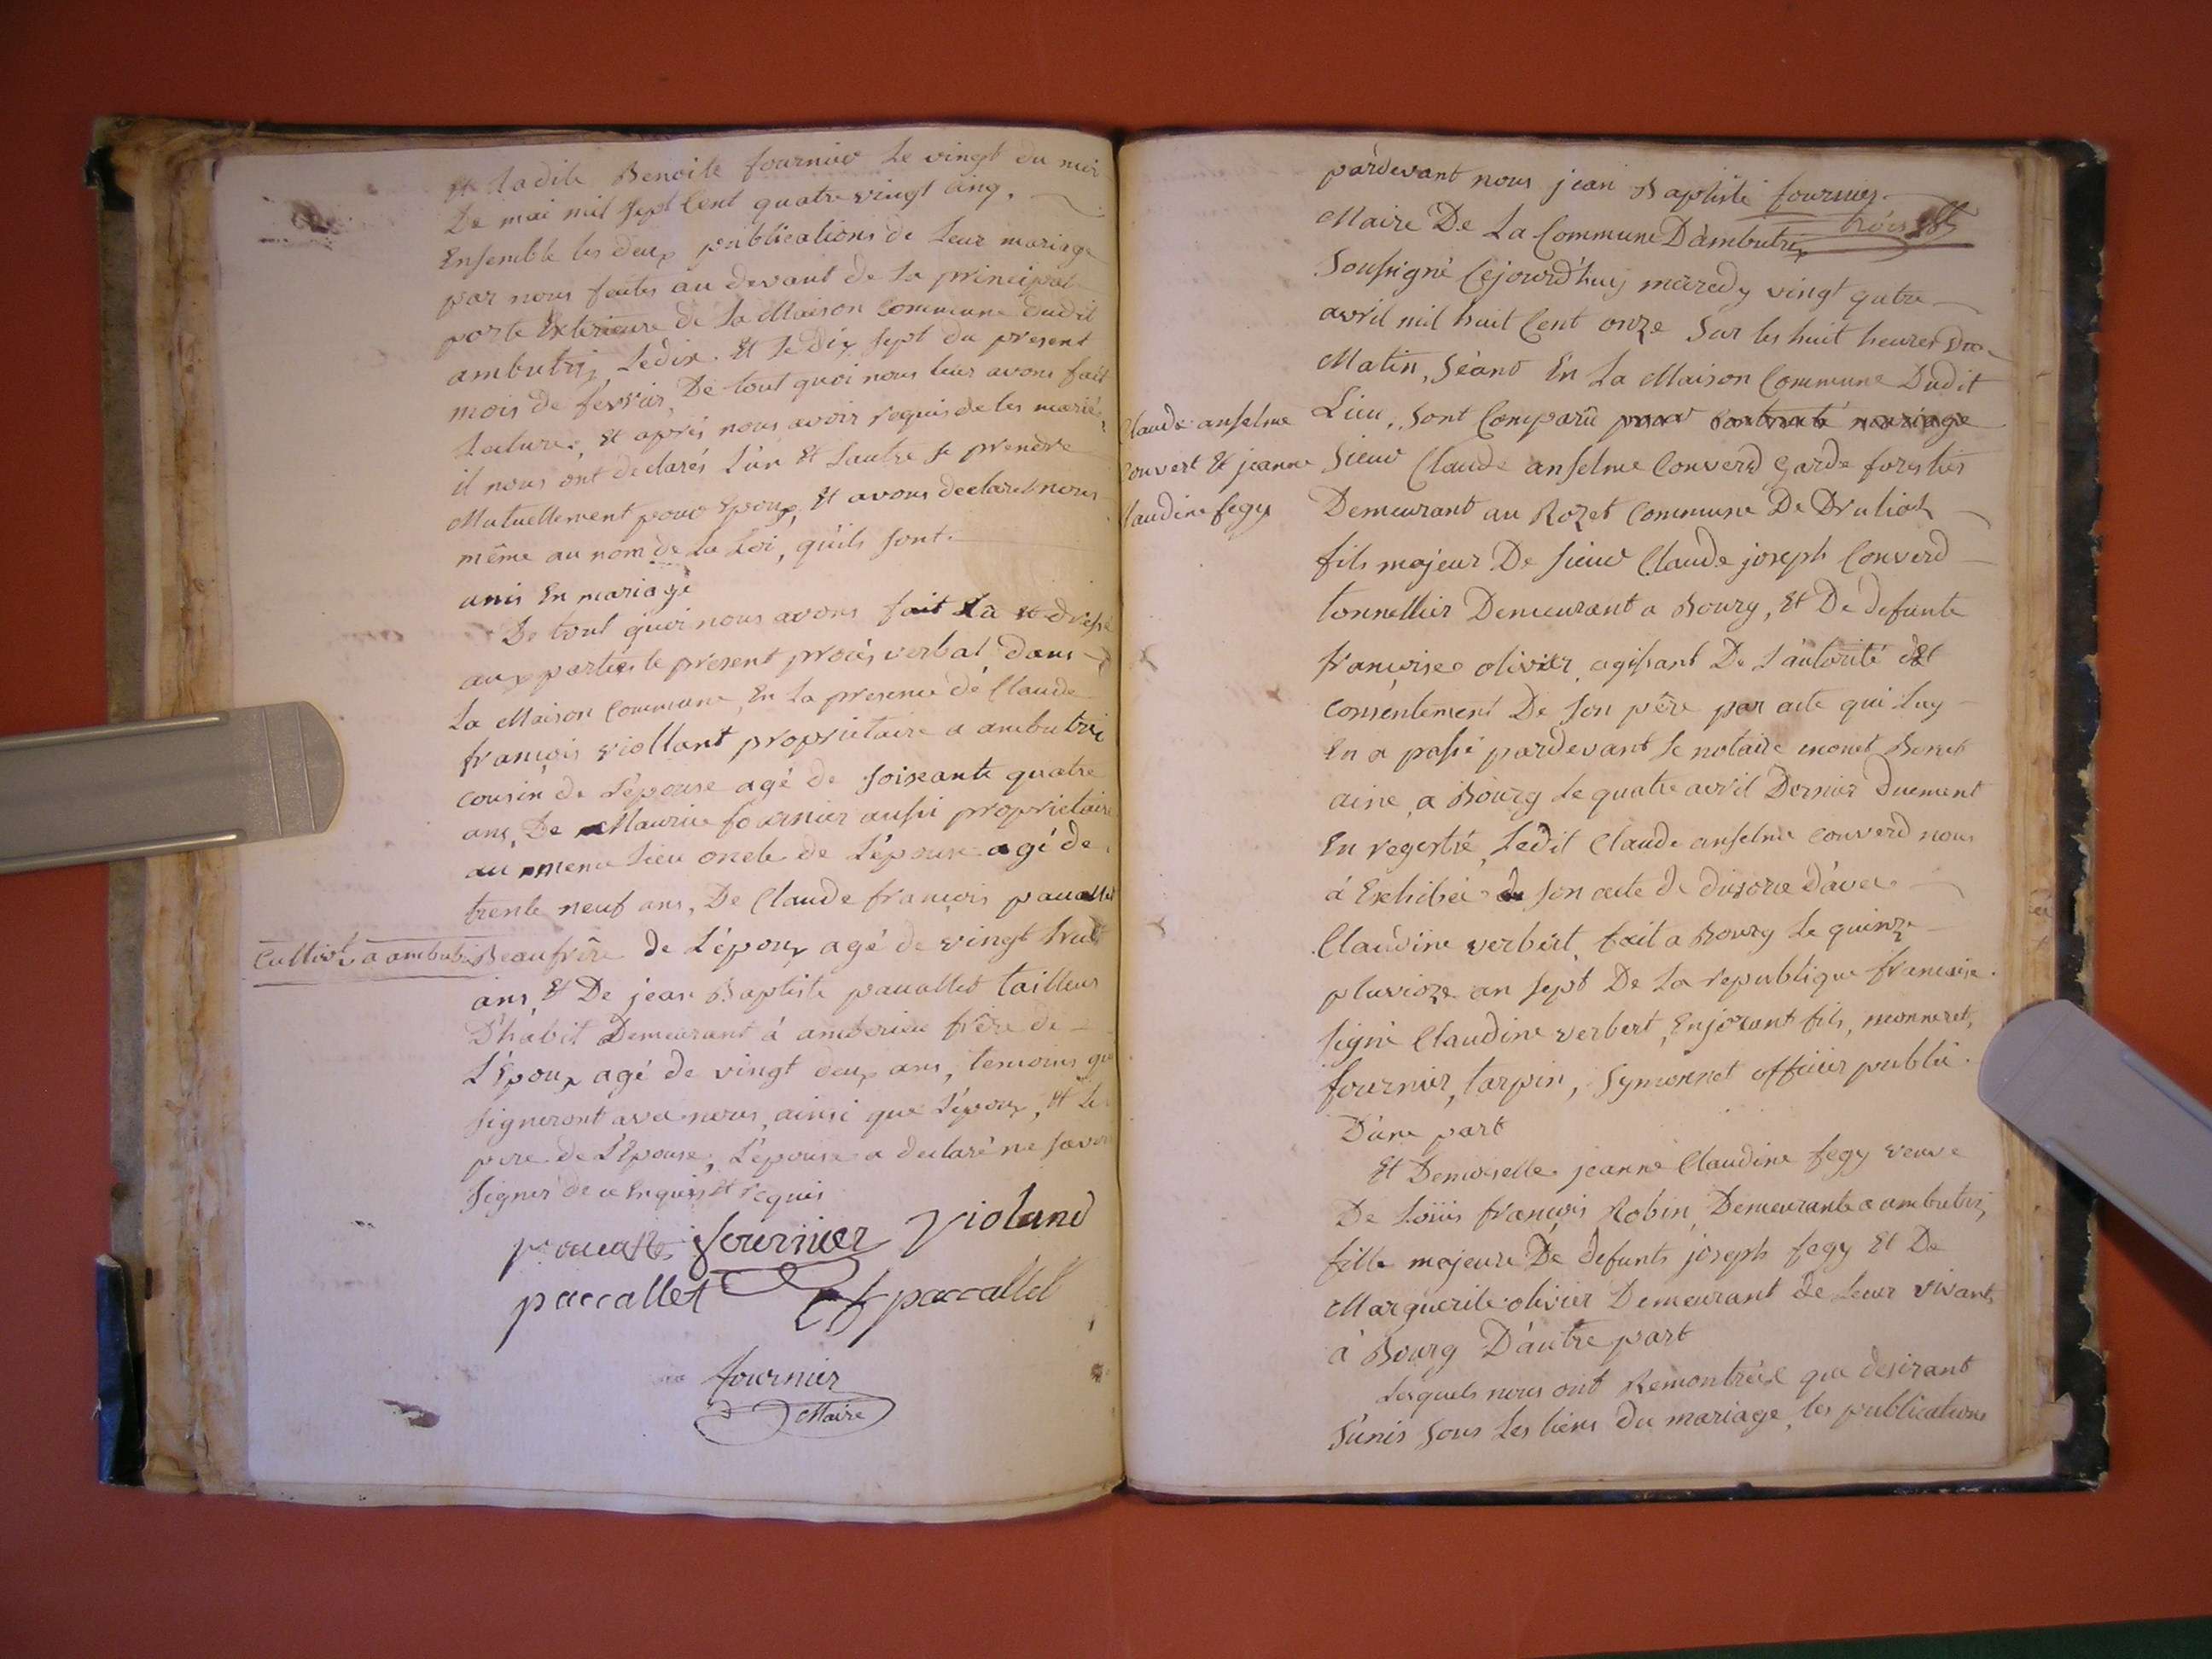 Et ladite Benoite fournier le vingt du moi
De mai mil sept Cent quatre vingt Cinq.
Ensemble les deux publications de Leur mariage
par nous faites au devant de la principal
porte Exterieure de la Maison Commune dudit
ambutrix, Le dix. Et le dix sept du present
mois de fevrier, De tout quoi nous leur avons fait
Lecture. Et après nous avoir requis de les marié
il nous ont declarés L'un Et Lautre se prendre
Mutuellement pour Epoux, Et avons declaré nous
même au nom de La Loi, qu'ils sont
unis En mariage
De tout quoi nous avons fait La et dressé
aux parties le present procès verbal, dans
La Maison Commune, En la presence de Claude
françois viollant proprietaire a ambutrix
cousin de L'epouse agé de soixante quatre
ans, De Maurice fournier aussi proprietaire
au meme Lieu oncle de L'épouse agé de
trente neuf ans, De Claude françois pauallet
Cultivr a ambutrix Beaufrère de L'époux agé de vingt huit
ans, Et De jean Baptiste pauallet tailleur
D'habit Demeurant à amberieu frère de
L'Epoux agé de vingt deux ans, temoins qui
signeront avec nous, ainsi que L'époux, Et le
pere de L'Epouse, L'épouse a declaré ne savoir
signer de ce Enquis Et requis
fournier violand
paccallet Cf paccallet
fournier
Maire
pardevant nous jean Baptiste fournier
Maire De La Commune D'ambutrix
Soussigné Cejourd'huy mecredy vingt quatre
avril mil huit Cent onze Sur les huit heures Du
Matin, Séant En La Maison Commune Dudit
Lieu, Sont Comparû pour Contracté mariage
Claude anselme
Convert Et jeanne
Claudine fegy
Sieur Claude anselme Converd Garde forestier
Demeurant au Rozet Commune De Druliat
fils majeur De sieur Claude joseph Converd
tonnellier Demeurant a Bourg, Et De defunte
françoise olivier agissant De L'autorité Et
Consentement De son père par acte qui Luy
En a passé pardevant le notaire monet Benet
ainé, a Bourg le quatre avril Dernier Duement
En regestré, Ledit Claude anselme Converd nous
á Exhibée son acte de divorce d'avec
Claudine verbert, fait a Bourg le quinze
pluvioze an sept De La republique francaise.
signé Claudine verbert, Enjorant fils, monneret,
fournier, tarpin, Symonnet officier public.
D'une part
Et Demoiselle jeanne Claudine fegy veuve
De Loüis françois Robin, Demeurante a ambutrix,
fille majeure De defunts joseph fegy Et De
Marguerite olivier Demeurant de Leur vivant
à Bourg D'autre part
Lesquels nous ont Remontréé que desirant
S'unir sous Les liens du mariage, les publications